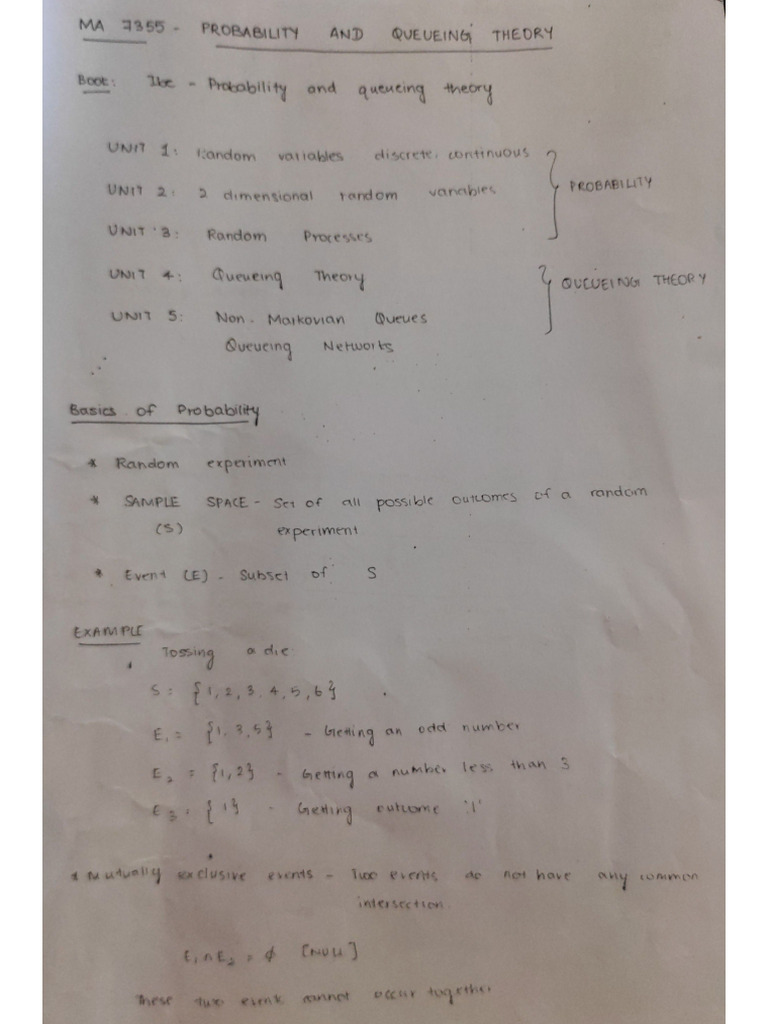 MA 7355 - PROBABILITY AND QUEUEING THEORY
Book: Ibe - Probability and queueing theory
UNIT 1: Random variables discrete, continuous
UNIT 2: 2 dimensional random variables
PROBABILITY
UNIT 3: Random Processes
UNIT 4: Queueing Theory
QUEUEING THEORY
UNIT 5: Non-Markovian Queues
Queueing Networks
Basics of Probability
* Random experiment
* SAMPLE SPACE - Set of all possible outcomes of a random
(S) experiment
* Event (E) - Subset of S
EXAMPLE
Tossing a die
S = {1, 2, 3, 4, 5, 6}
E₁ = {1, 3, 5} - Getting an odd number
E₂ = {1, 2} - Getting a number less than 3
E₃ = {1} - Getting outcome '1'
* Mutually exclusive events - Two events do not have any common
intersection.
E₁ ∩ E₂ = ϕ [NULL]
These two events cannot occur together